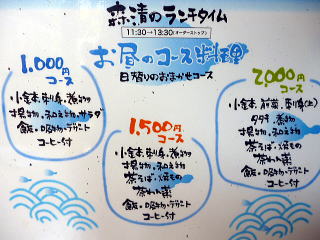 森漬のランチタイム
11:30→13:30(オーダーストップ)
お昼のコース料理
日替りのおまかせコース
1,000円
コース
小金本・刺身・煮物
揚げ物・和え物・サラダ
飯・吸物・デザート
コーヒー付
1,500円
コース
小金本・刺身・煮物
揚げ物・和え物
茶そば・焼もの
茶わん蒸
飯・吸物・デザート
コーヒー付
2,000円
コース
小金本・前菜・刺身(上)
タタキ・煮物
揚げ物・和え物
茶そば・焼もの
茶わん蒸
飯・吸物・デザート
コーヒー付